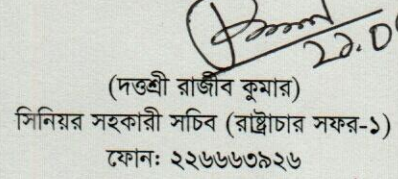 ২১.0
(দত্তশ্রী রাজীব কুমার)
সিনিয়র সহকারী সচিব (রাষ্ট্রাচার সফর-১)
ফোন: ২২৬৬৬৩৯২৬